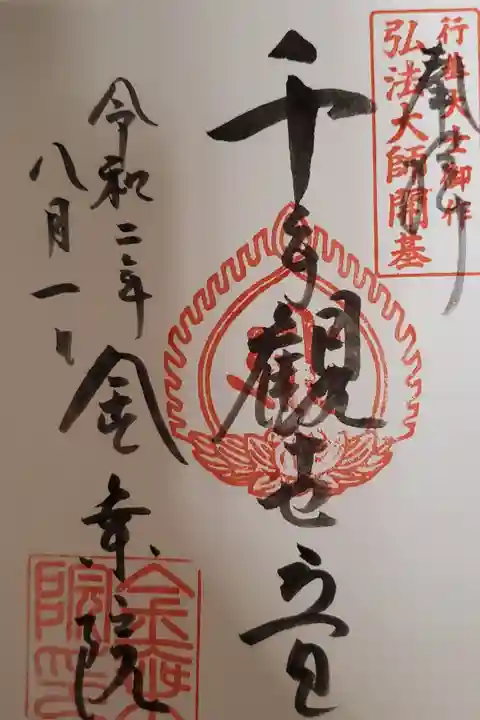 行基大士御作
弘法大師開基
奉拝
千手観世音
令和二年
八月一日
金乗院